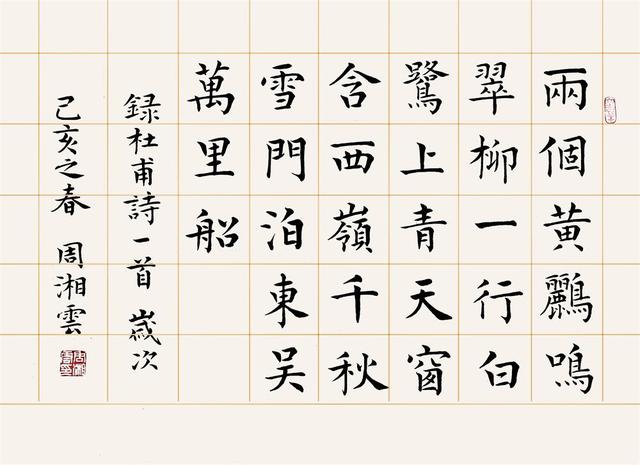 兩個黃鸝鳴
翠柳一行白
鷺上青天窗
含西嶺千秋
雪門泊東吴
萬里船
録杜甫詩一首 歲次
己亥之春 周湘雲